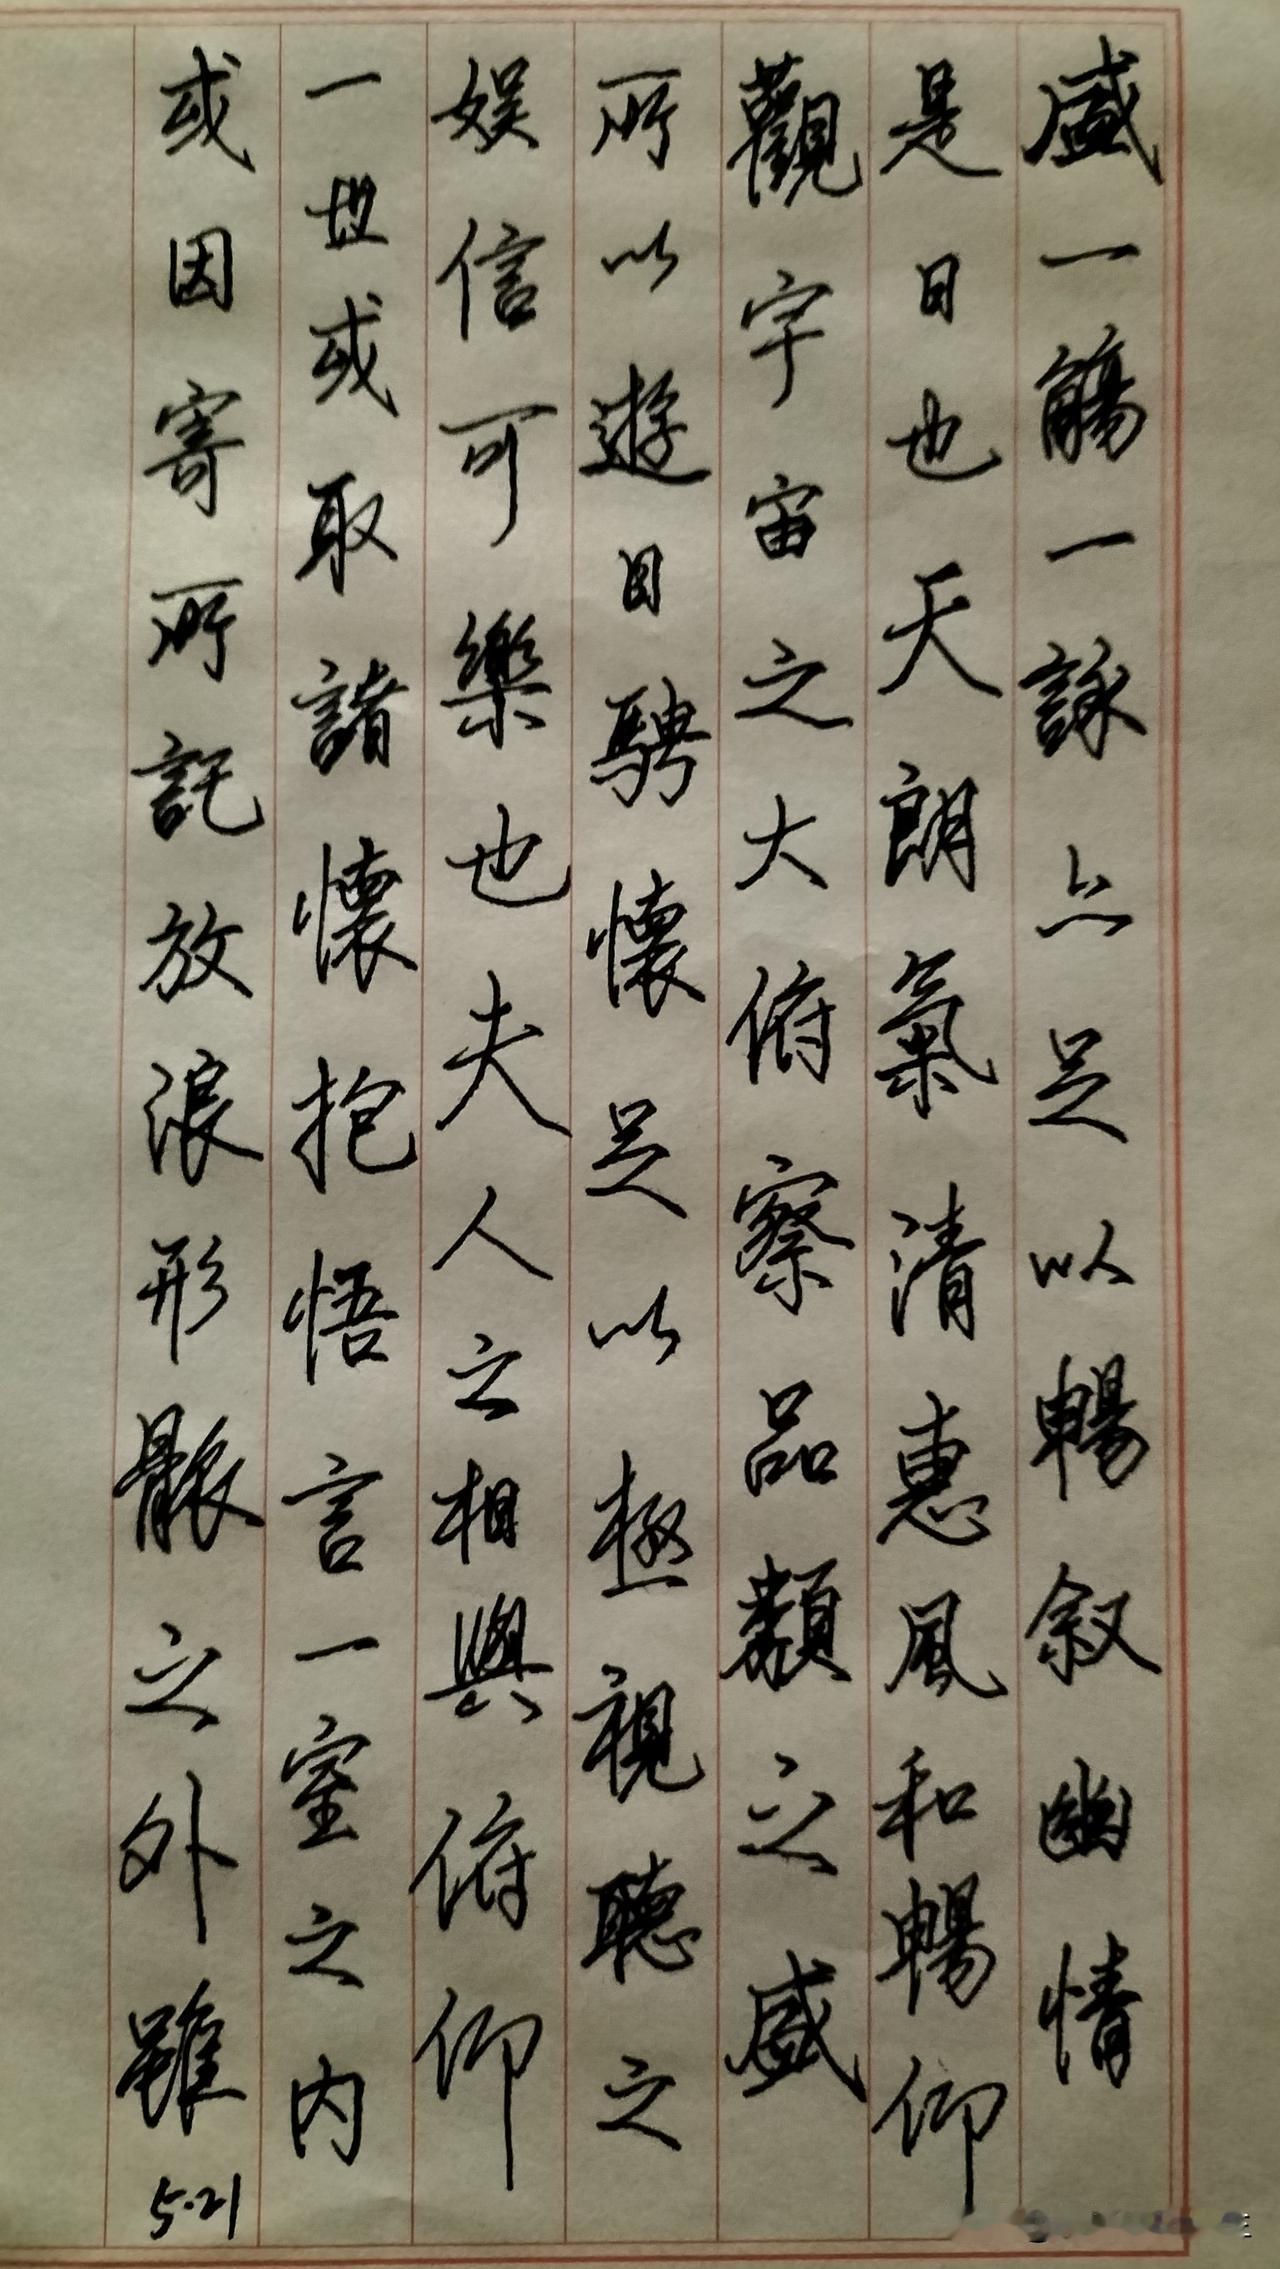 盛一觴一詠亦足以暢叙幽情
是日也天朗氣清惠風和暢仰
觀宇宙之大俯察品類之盛
所以遊目騁懷足以極視聽之
娛信可樂也夫人之相與俯仰
一世或取諸懷抱悟言一室之内
或因寄所託放浪形骸之外雖
5.21